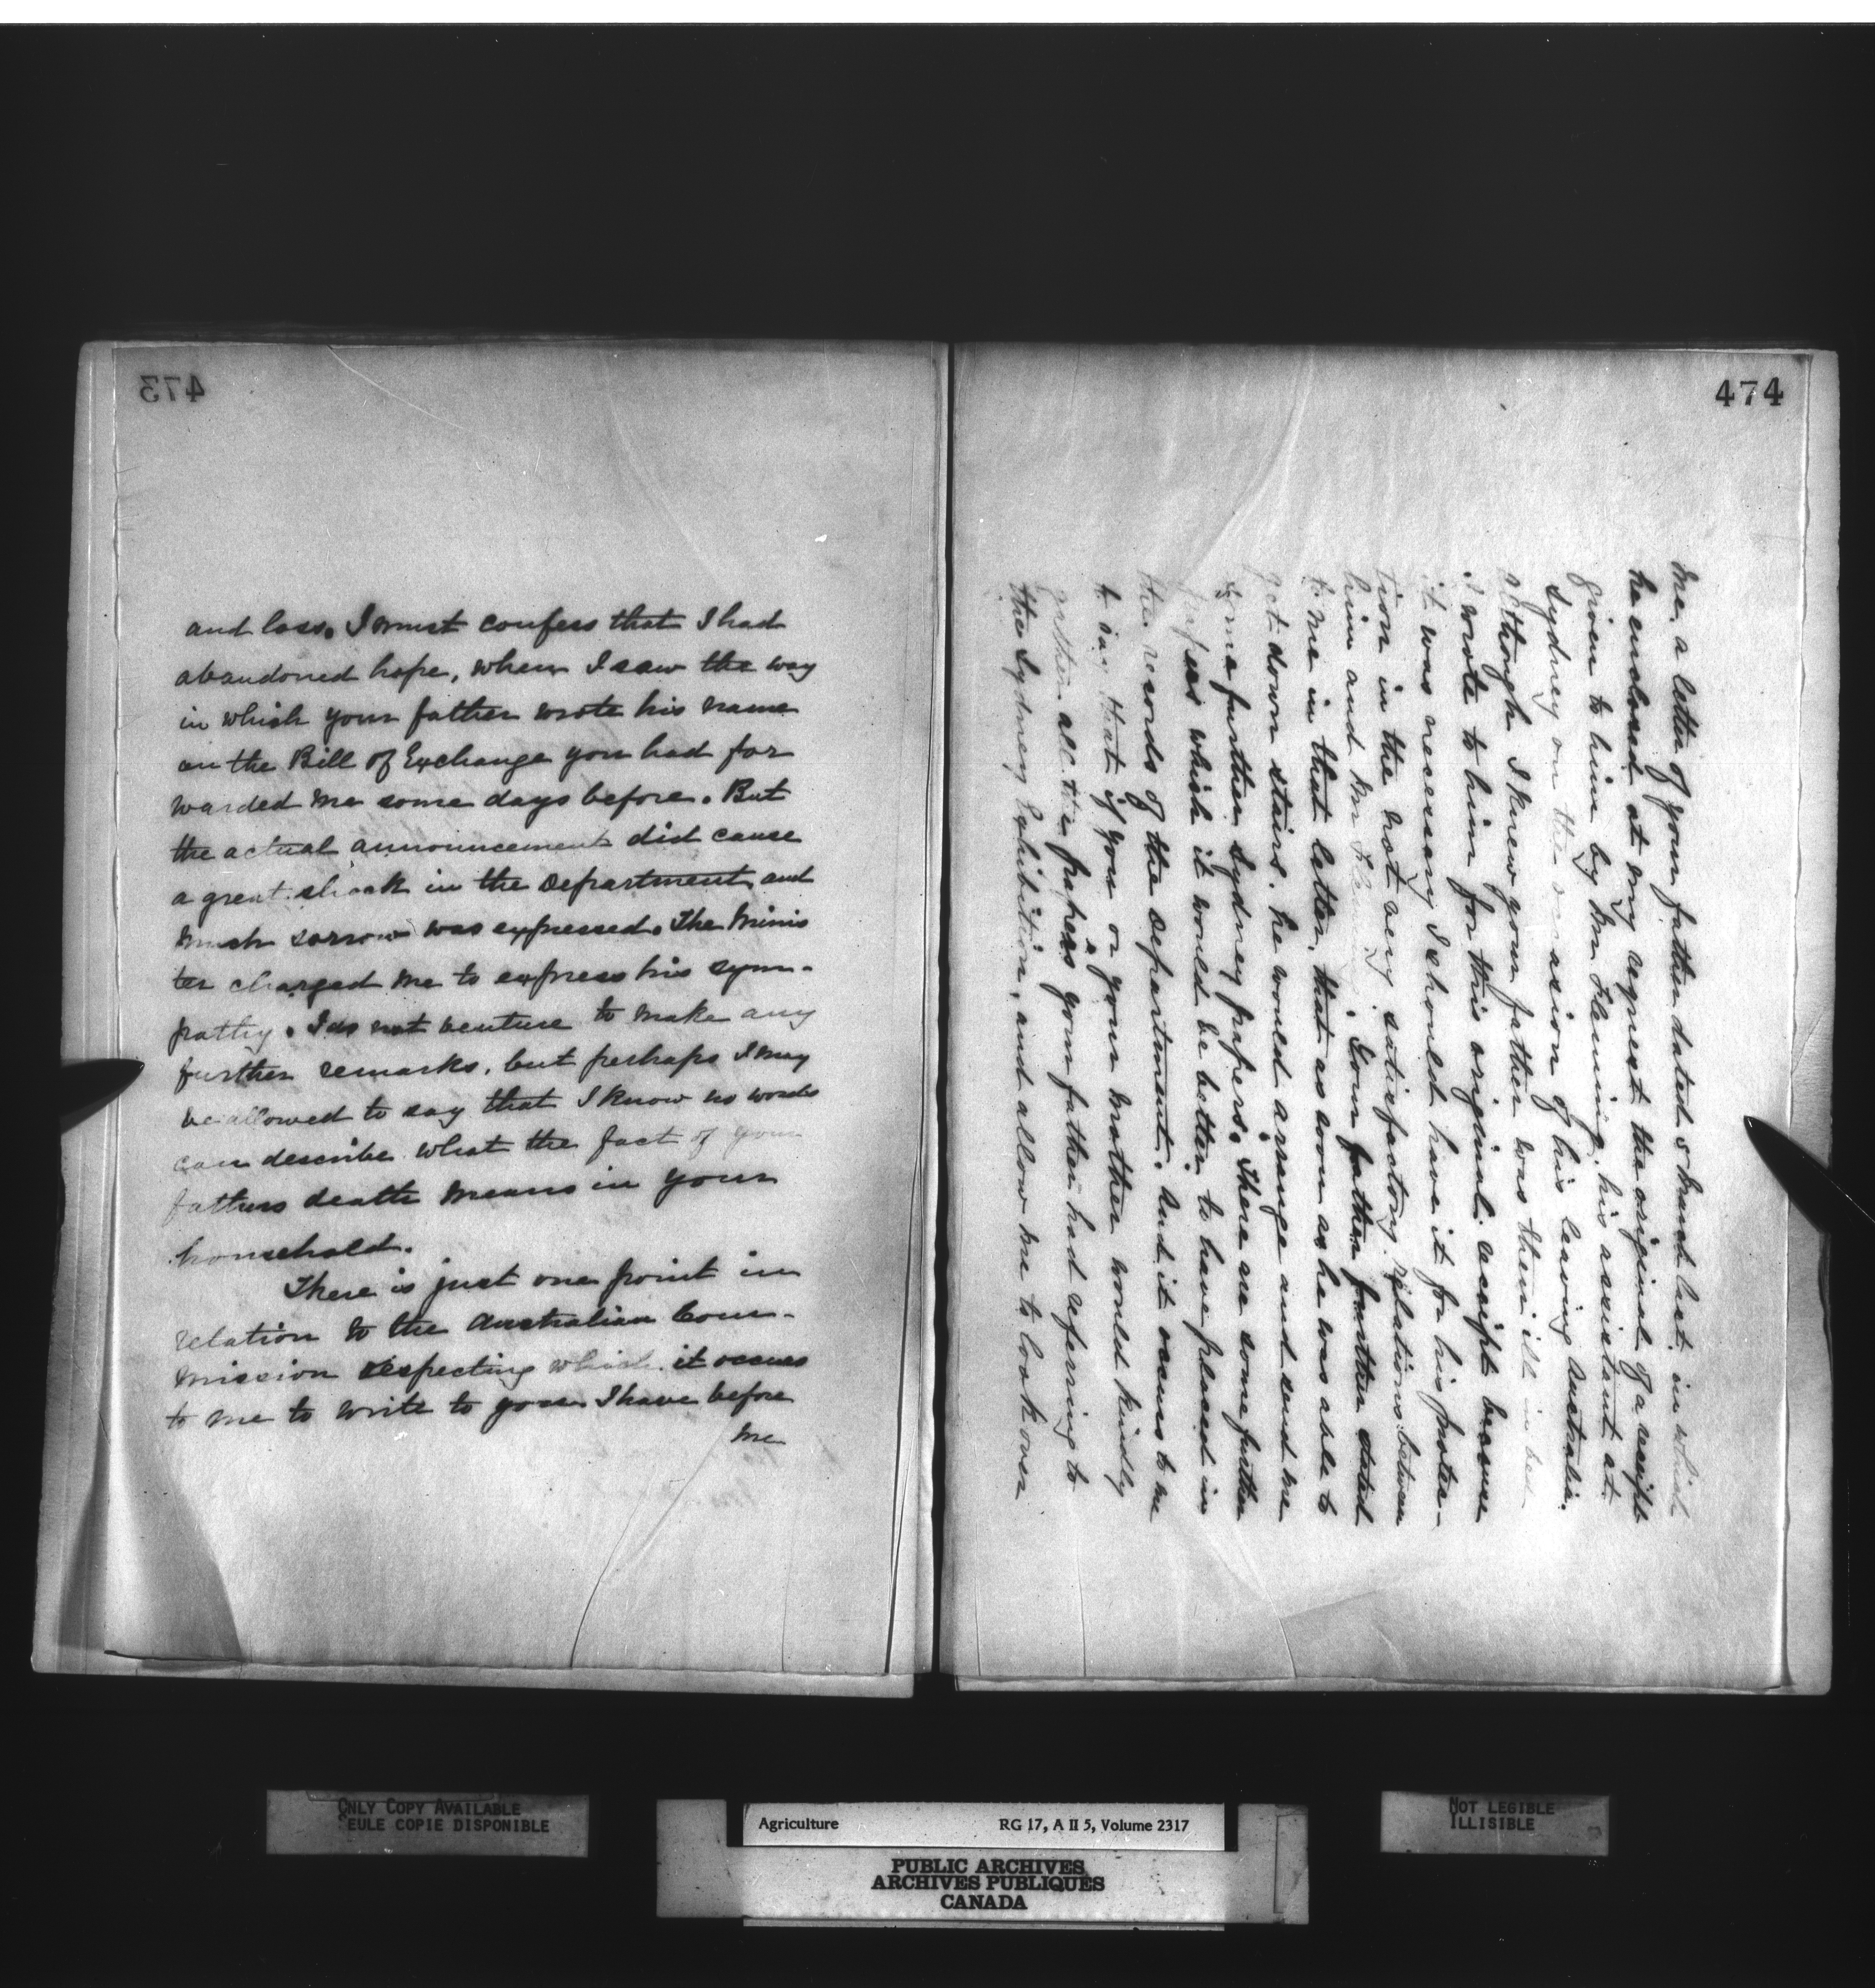 473
and loss. I must confess that I had
abandoned hope, when I saw the way
in which your father wrote his name
on the Bill of Exchange you had for
warded me some days before. But
the actual announcement did cause
a great shock in the Department and
much sorrow was expressed. The Minis
ter charged me to express his sym-
pathy. I do not venture to make any
further remarks, but perhaps I may
be allowed to say that I know no words
can describe what the fact of your
fathers death means in your
household.
There is just one point in
relation to the Australian Com-
mission respecting which it occurs
to me to write to you. I have before
me
474
me, a letter of your father dated March last, in which
he enclosed at my request the original of a receipt
given to him by Mr Fleming, his assistant at
Sydney on the occasion of his leaving Australia.
Although I knew your father was then ill in bed
I wrote to him for this original receipt because
it was necessary I should have it for his protec-
tion in the not very satisfactory relations between
him and Mr Fleming. Your father further stated
to me in that letter, that as soon as he was able to
get down stairs he would arrange and send me
some further Sydney papers. There are some further
papers which it would be better to have placed in
the records of the department. And it occurs to me
to say that if you or your mother would kindly
gather all the papers your father had referring to
the Sydney Exhibition, and allow me to look over
ONLY COPY AVAILABLE
SEULE COPIE DISPONIBLE
Agriculture RG 17, A II 5, Volume 2317
PUBLIC ARCHIVES
ARCHIVES PUBLIQUES
CANADA
NOT LEGIBLE
ILLISIBLE